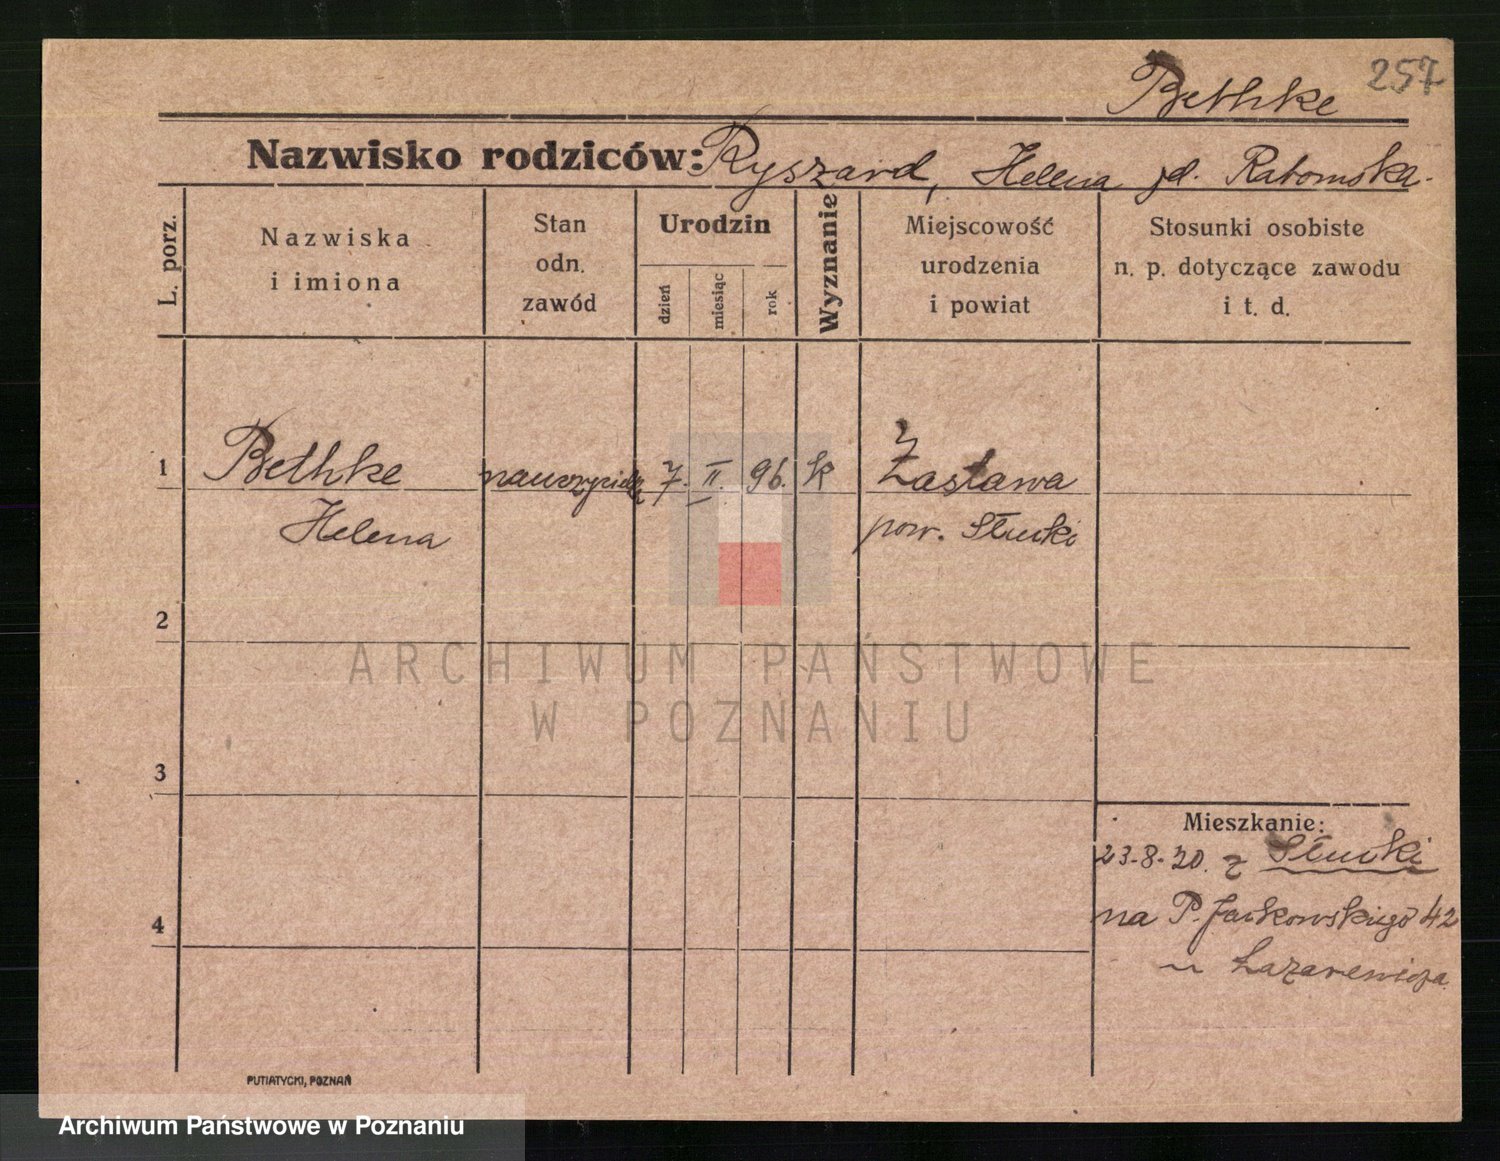 257
Bethke
Nazwisko rodziców: Ryszard, Helena zd. Ratomska.
L. porz.
Nazwiska
i imiona
Stan
odn.
zawód
Urodzin
dzień
miesiąc
rok
Wyznanie
Miejscowość
urodzenia
i powiat
Stosunki osobiste
n. p. dotyczące zawodu
i t. d.
1
Bethke
Helena
7. II. 96.
k
Zastawa
pow. Słucki
2
ARCHIWUM PAŃSTWOWE
W POZNANIU
3
Mieszkanie:
23-8-20. z Słucki
na P. Jackowskiego 42
u Łazarewicza
4
PUTIATYCKI, POZNAŃ
Archiwum Państwowe w Poznaniu